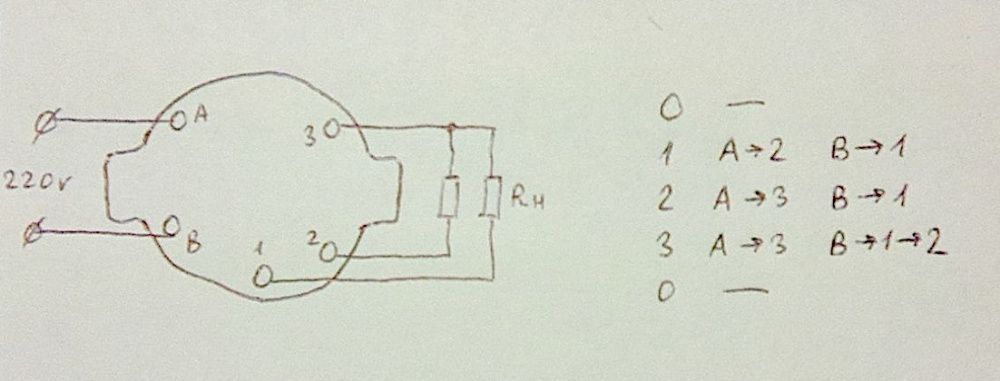 A
3
220v
Rн
B
1
2
0 —
1 A→2 B→1
2 A→3 B→1
3 A→3 B→1→2
0 —